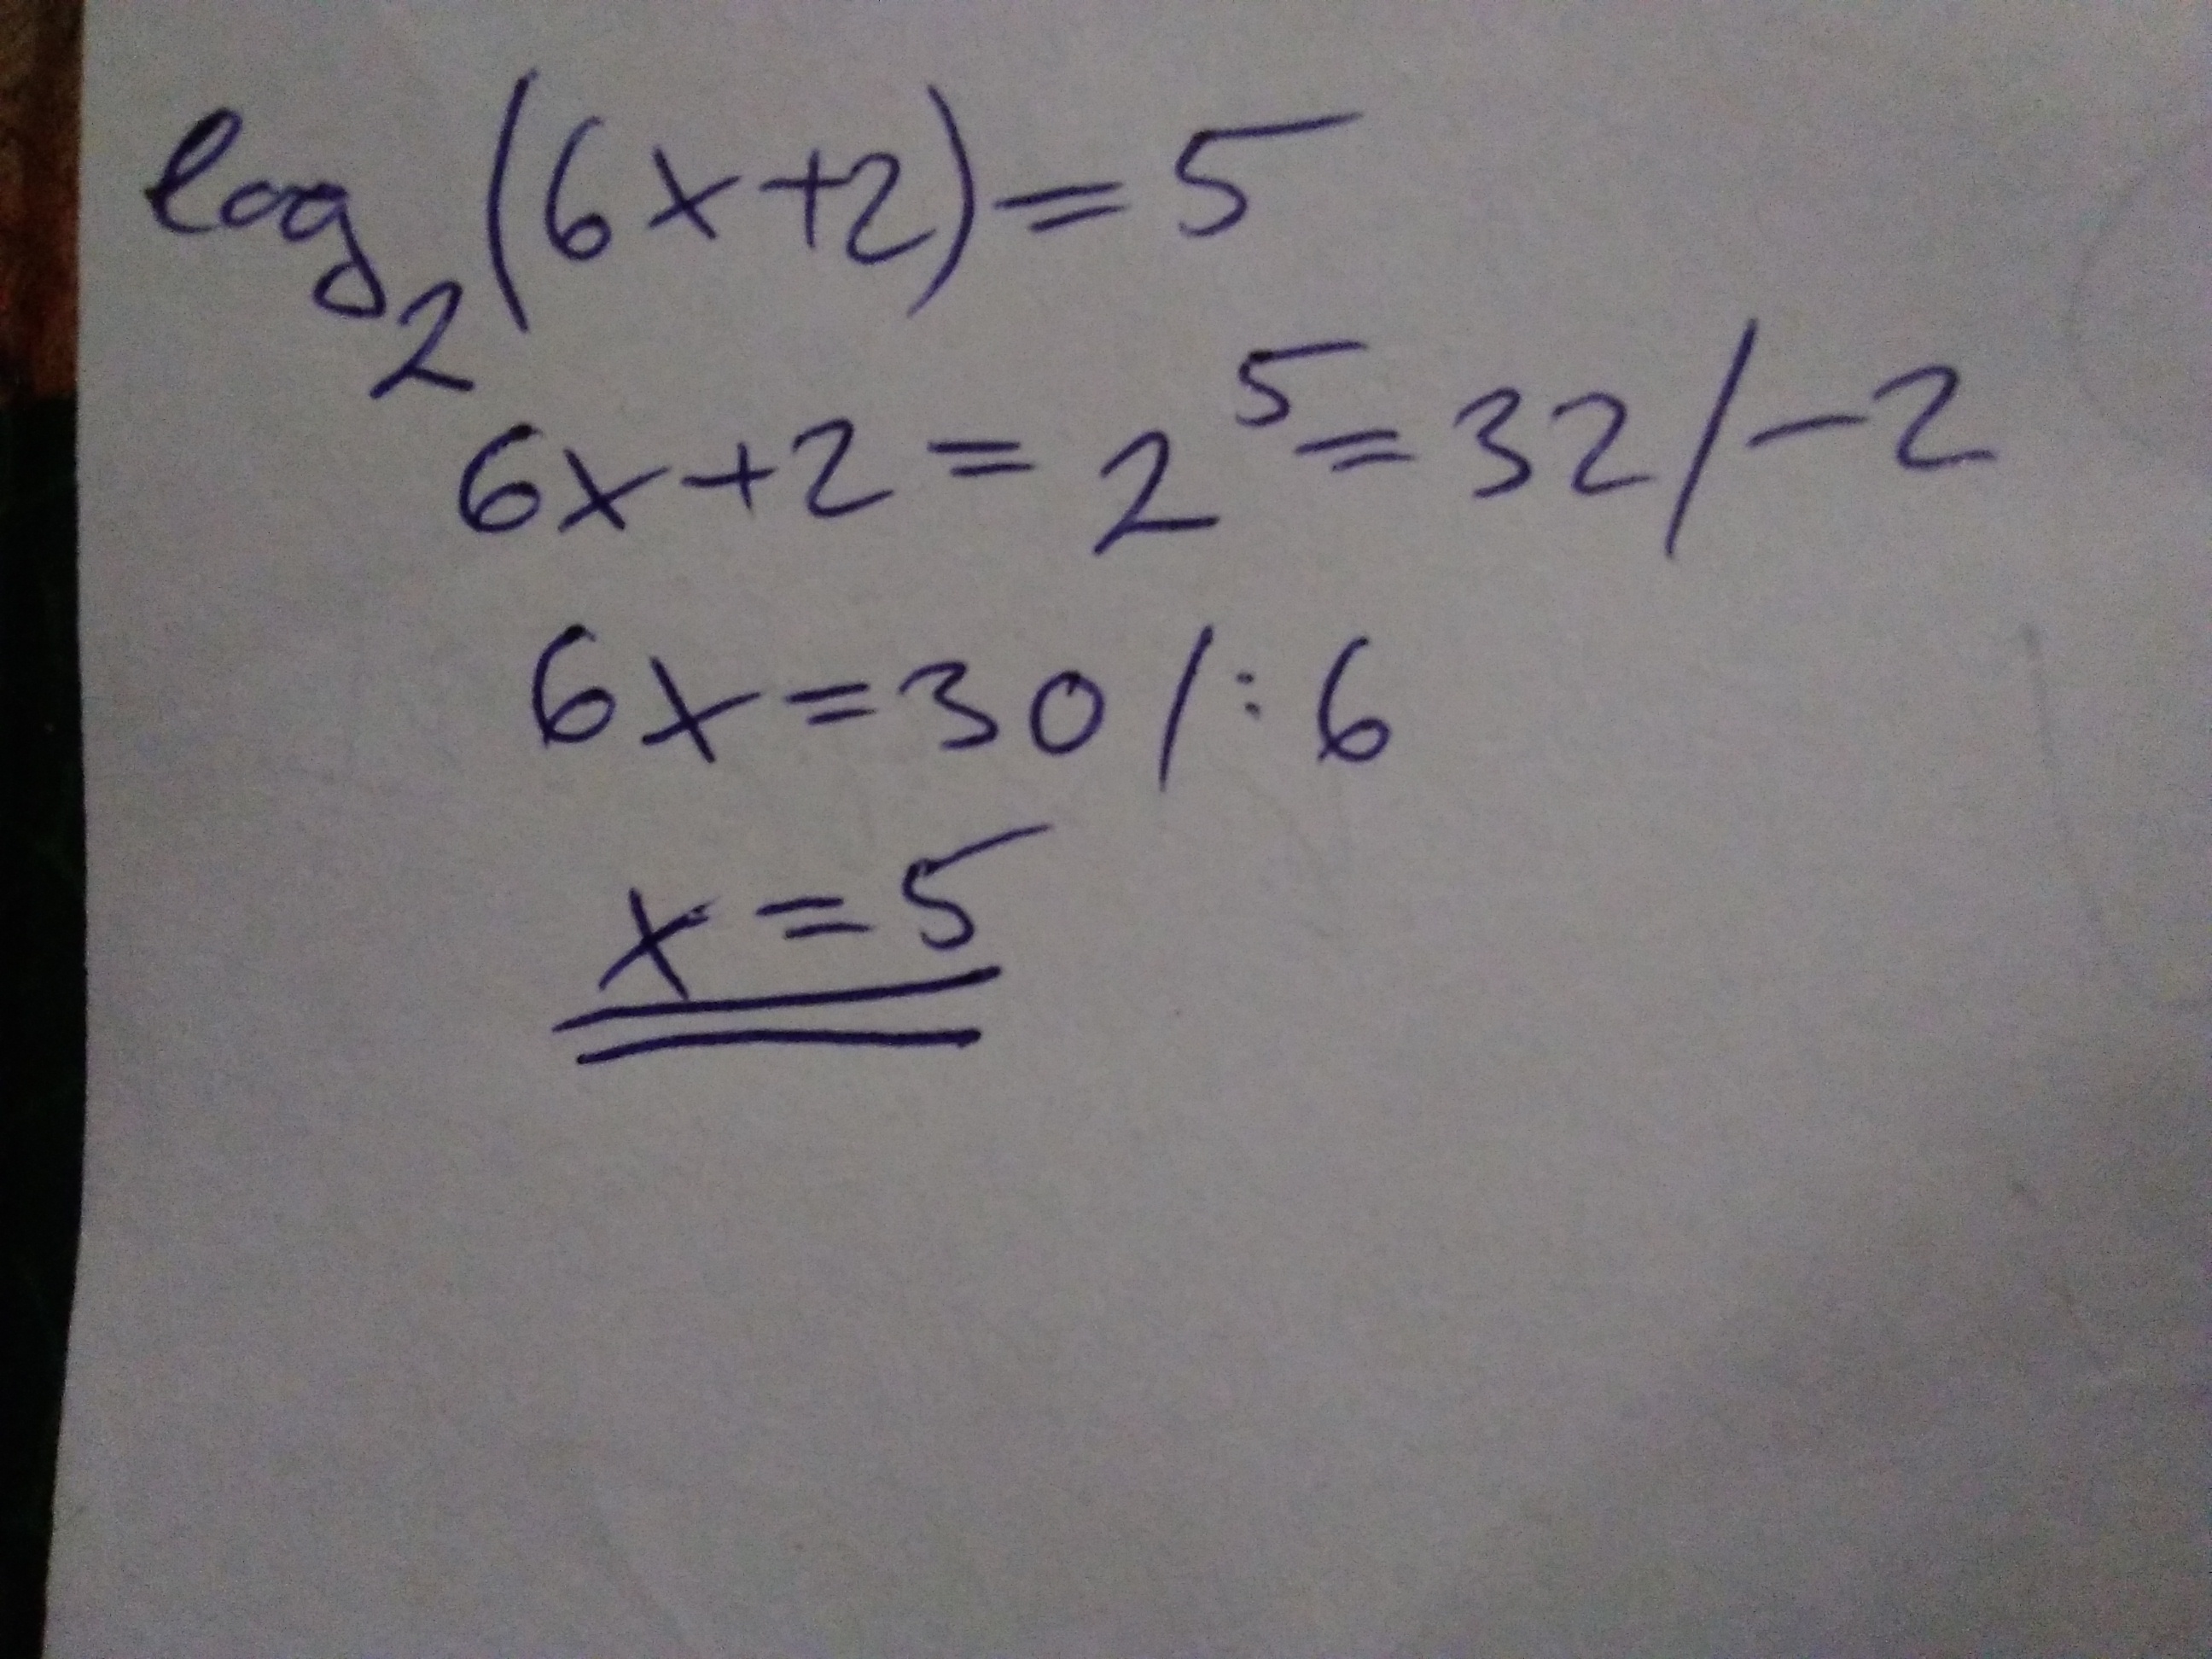 log₂(6x+2)=5
6x+2=2⁵=32/-2
6x=30/:6
x=5